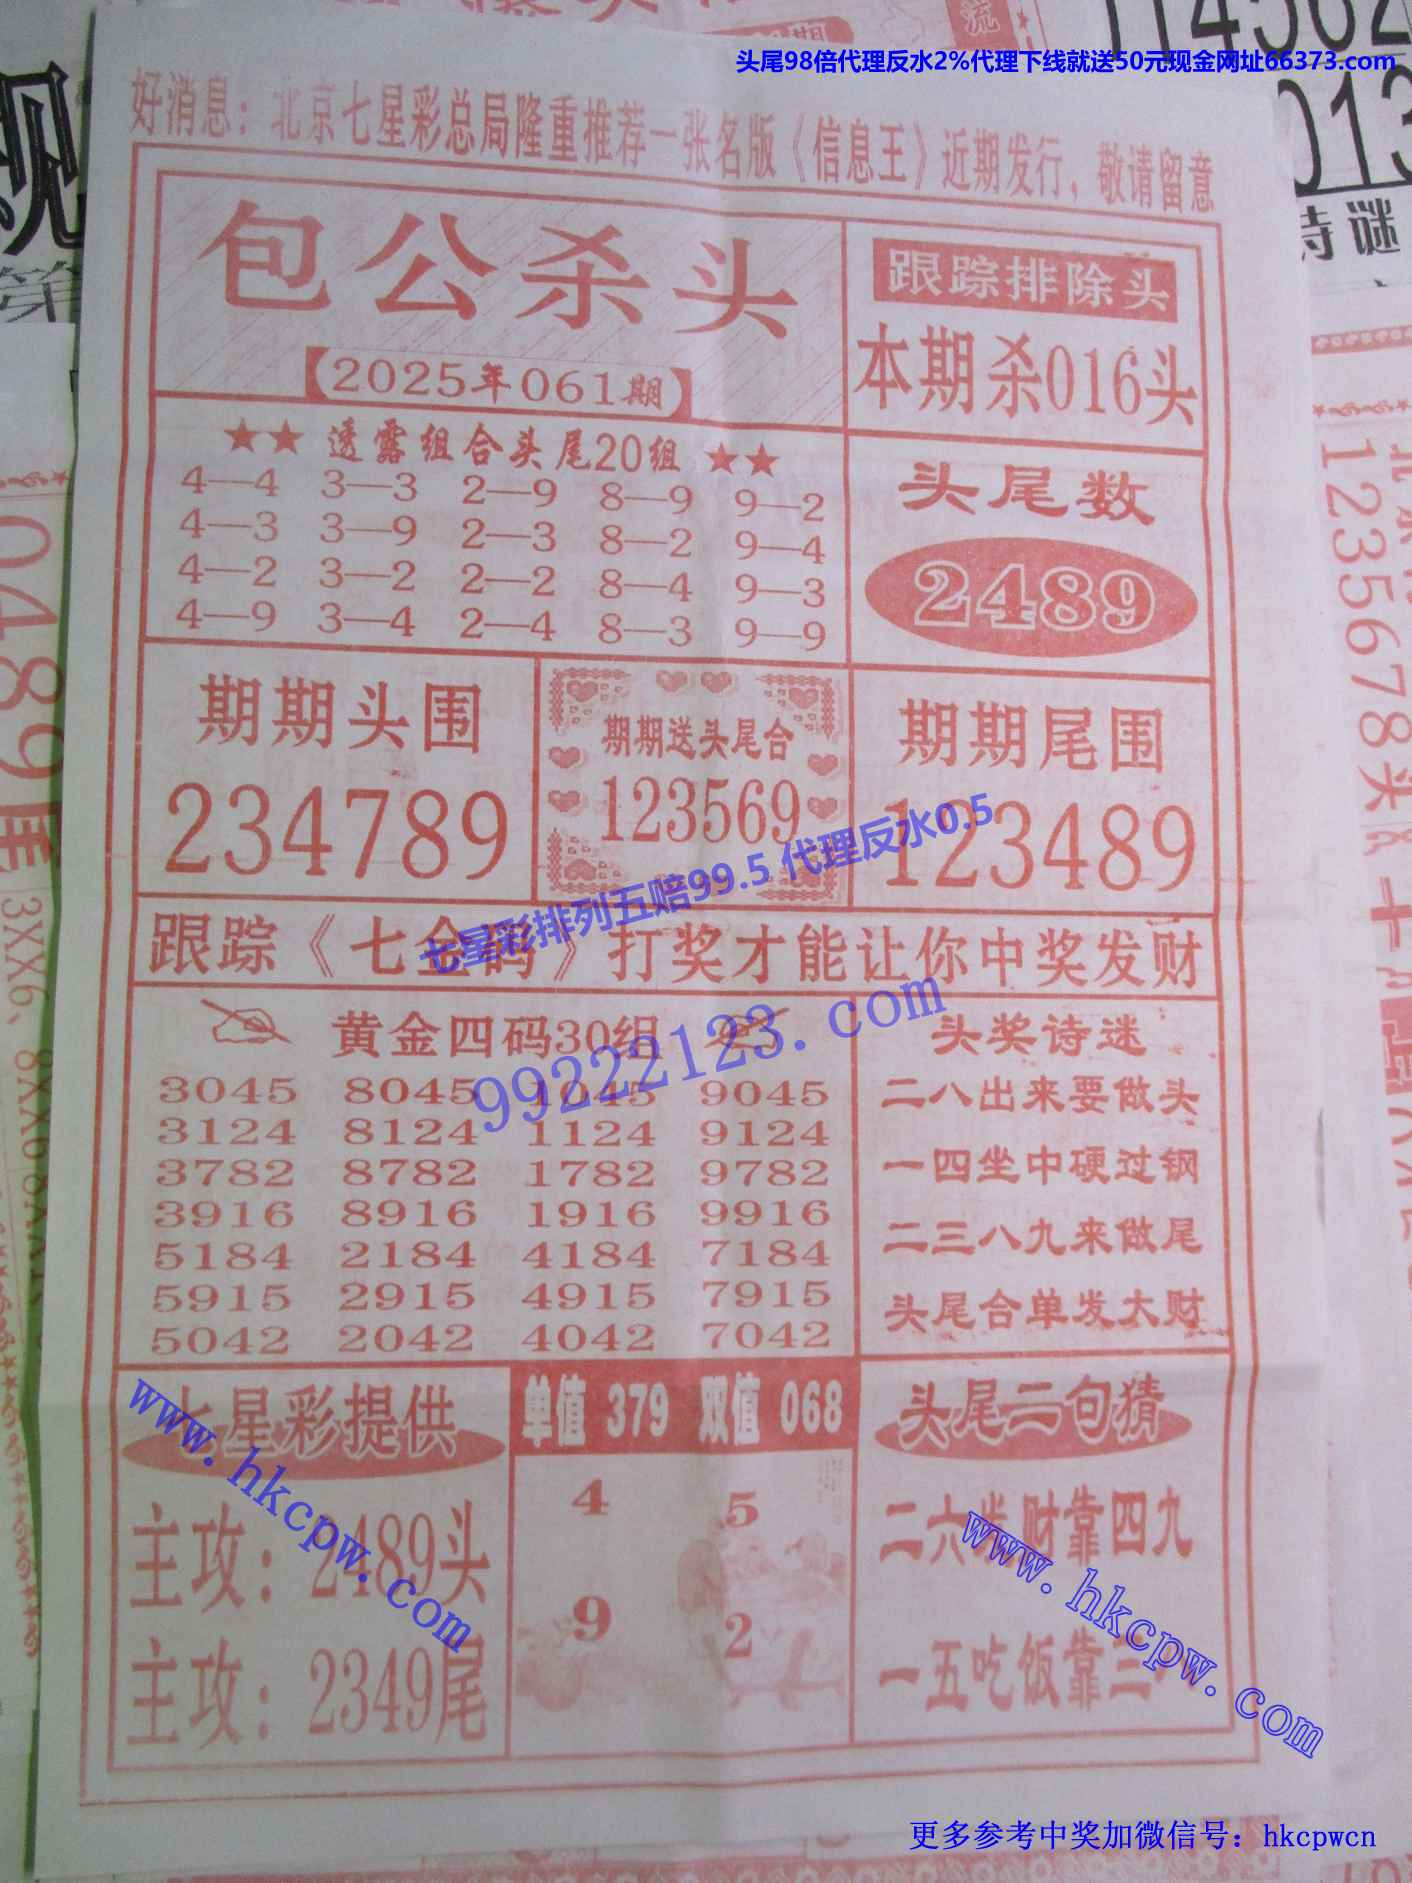 头尾98倍代理反水2%代理下线就送50元现金网址66373.com
好消息：北京七星彩总局隆重推荐一张名版《信息王》近期发行，敬请留意
包公杀头
【2025年061期】
跟踪排除头
本期杀016头
★★ 透露组合头尾20组 ★★
4—4 3—3 2—9 8—9 9—2
4—3 3—9 2—3 8—2 9—4
4—2 3—2 2—2 8—4 9—3
4—9 3—4 2—4 8—3 9—9
头尾数
2489
期期头围
234789
期期送头尾合
123569
期期尾围
123489
七星彩排列五赔99.5 代理反水0.5
跟踪《七金码》打奖才能让你中奖发财
99222123.com
黄金四码30组
3045 8045 1045 9045
3124 8124 1124 9124
3782 8782 1782 9782
3916 8916 1916 9916
5184 2184 4184 7184
5915 2915 4915 7915
5042 2042 4042 7042
头奖诗迷
二八出来要做头
一四坐中硬过钢
二三八九来做尾
头尾合单发大财
七星彩提供
主攻：2489头
主攻：2349尾
www.hkcpw.com
单值 379 双值 068
4 5
9 2
头尾二句猜
二六发财靠四九
一五吃饭靠三
www.hkcpw.com
更多参考中奖加微信号：hkcpwcn
诗谜
0489尾
3XX6、8XX6
1235678头